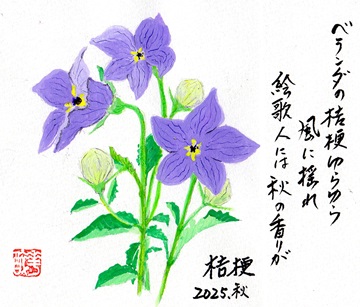 ベランダの桔梗ゆらゆら
風に揺れ
絵歌人には秋の香りが
桔梗
2025.秋